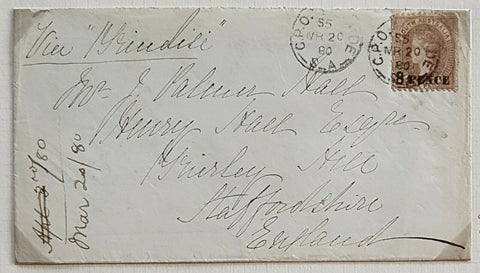 Via "Brindisi"
G.P.O. ADELAIDE
S5
MR 20
80
S.A.
G.P.O. DE
S5
MR 20
80
SOUTH AUSTRALIA
8 PENCE
Mr J. Palmer Hall
Henry Hall Esqre
Brierley Hill
Staffordshire
England
80
Mar 20/80